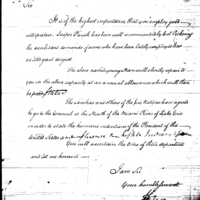 Sir
It is of the highest importance that you employ good
interpreters. Jasper Parish has been well recommended by Col. Pickering
the exorbitant demands of some who have been lately employed has
excited great disgust.
The above named young Man will shortly repair to
you in the above capacity at an annual allowance which will then
be
The Senekas and others of the five Nations have agreed
to go to the Council at the Mouth of the Miami River of Lake Erie
in order to state the humane intentions of the President of the
United States
You will ascertain the time of their departure
and let me know it
I am Sir
Your humble Servant